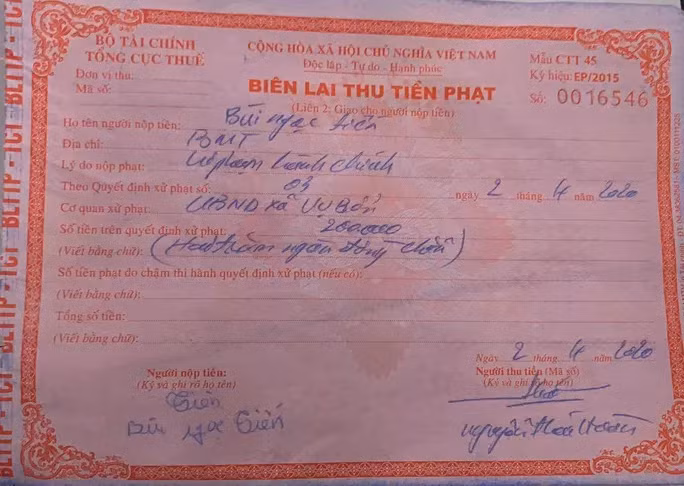 BỘ TÀI CHÍNH
TỔNG CỤC THUẾ
Đơn vị thu:
Mã số:
CỘNG HÒA XÃ HỘI CHỦ NGHĨA VIỆT NAM
Độc lập - Tự do - Hạnh phúc
Mẫu CTT 45
Ký hiệu: EP/2015
Số: 0016546
BIÊN LAI THU TIỀN PHẠT
(Liên 2: Giao cho người nộp tiền)
Họ tên người nộp tiền: Bùi ngọc tiến
Địa chỉ: BMT
Lý do nộp phạt: Vi phạm hành chính
Theo Quyết định xử phạt số: 03 ngày 2 tháng 4 năm 2020
Cơ quan xử phạt: UBND xã Vụ Bổn
Số tiền trên quyết định xử phạt: 200.000
(Viết bằng chữ): (Hai trăm ngàn đồng chẵn)
Số tiền phạt do chậm thi hành quyết định xử phạt (nếu có):
(Viết bằng chữ):
Tổng số tiền:
(Viết bằng chữ):
Ngày 2 tháng 4 năm 2020
Người nộp tiền:
(Ký và ghi rõ họ tên)
Tiến
Bùi ngọc Tiến
Người thu tiền (Mã số)
(Ký và ghi rõ họ tên)
nguyễn
BLTTP - TCT - BLTTP - TCT - BLTTP - TCT